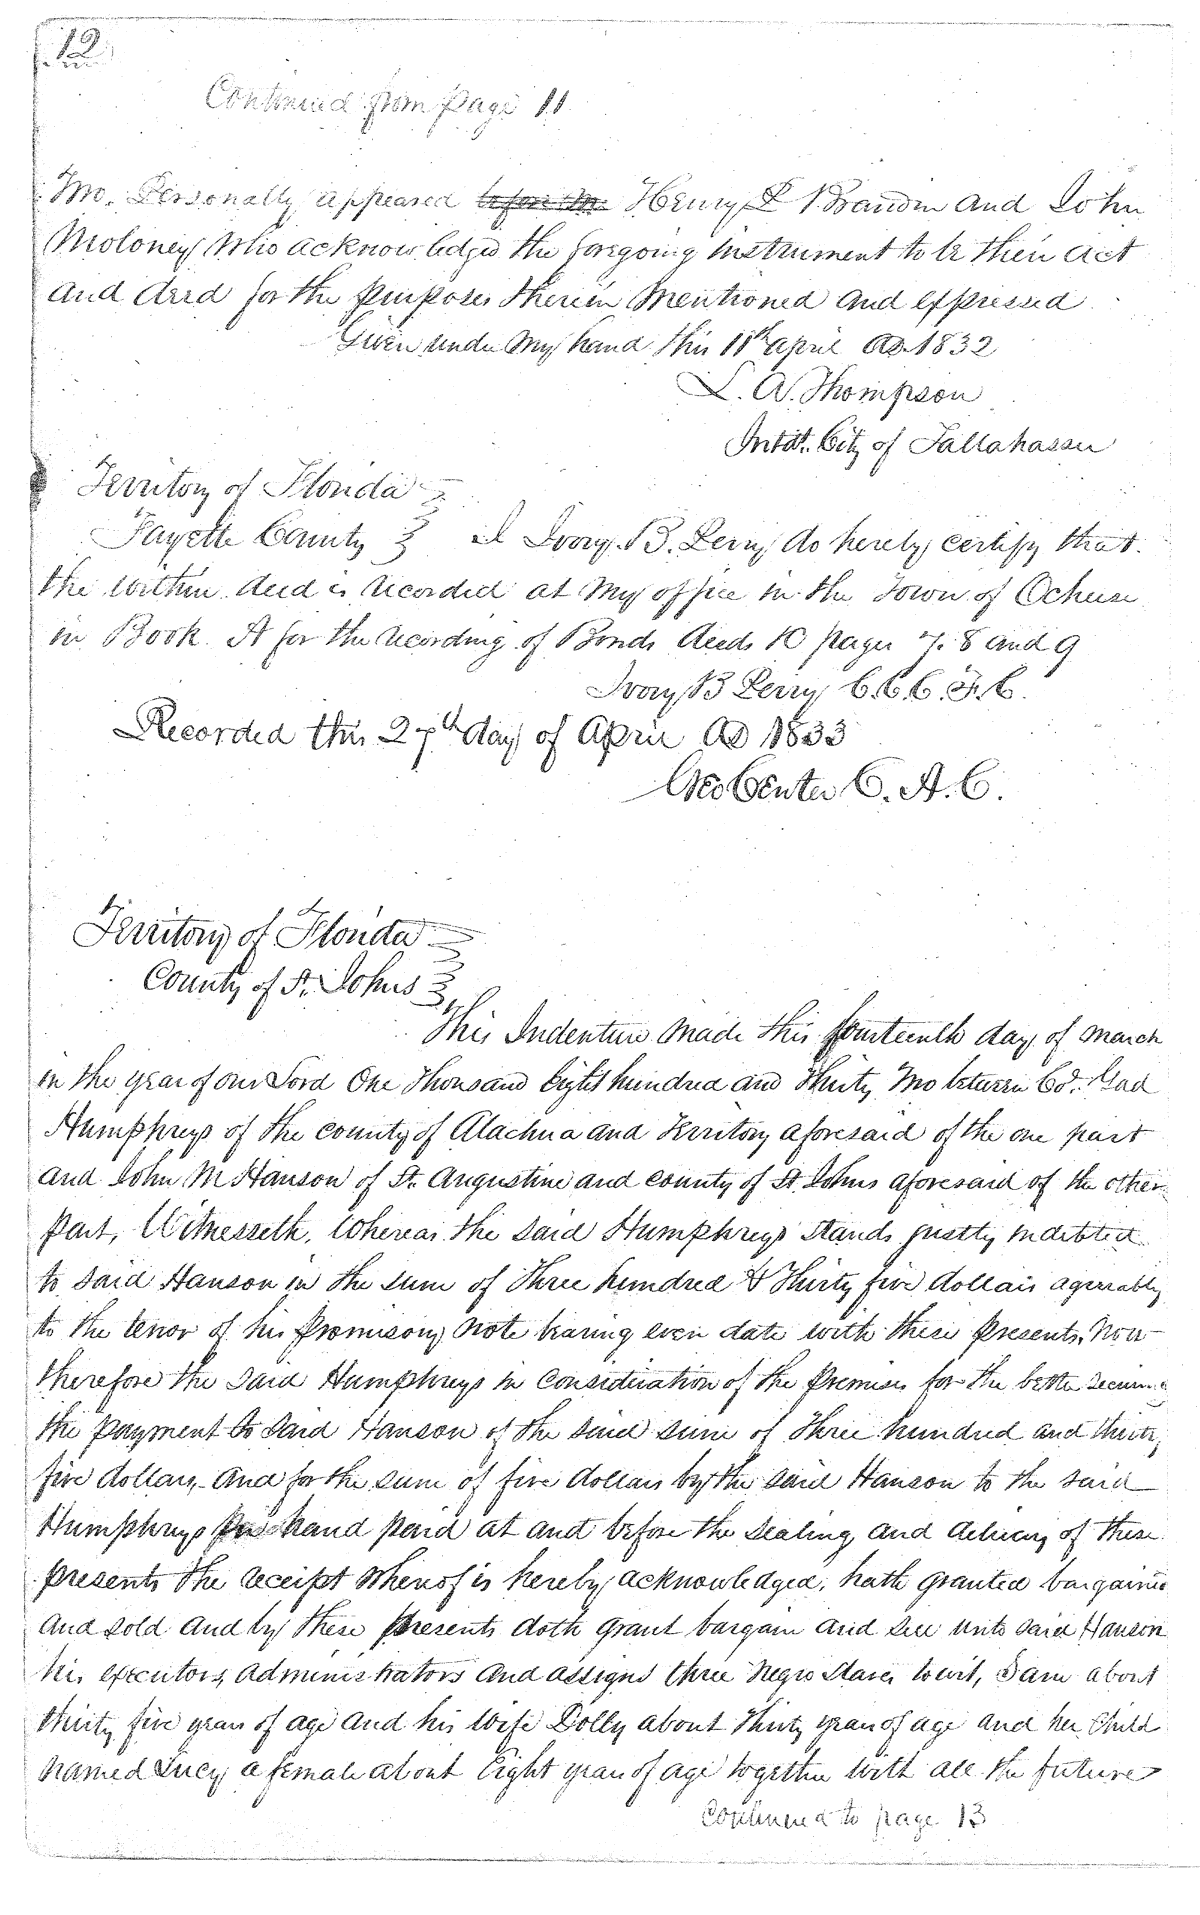 12
Continued from page 11
Me. Personally appeared before Me Henry L Brandin and John
Moloney Who acknowledged the foregoing instrument to be their act
and deed for the purposes therein Mentioned and expressed
Given under My hand this 11th april AD. 1832
L. A. Thompson
Intdt. City of Tallahassee
Territory of Florida
Fayette County I Ivory B. Perry do hereby certify that
the within deed is recorded at My office in the Town of Ocheese
in Book A for the recording of Bonds deeds &C pages 7. 8 and 9
Ivory B Perry C.C.C.F.C.
Recorded this 27th day of April AD 1833
Geo Center C. A. C.
Territory of Florida
County of St. Johns
This Indenture Made this fourteenth day of march
in the year of our Lord One Thousand Eight hundred and Thirty Two between Col. Gad
Humphreys of the county of Alachua and Territory aforesaid of the one part
and John M Hanson of St. Augustine and county of St. Johns aforesaid of the other
Part, Witnesseth, Whereas the said Humphreys stands justly indebted
to said Hanson in the sum of Three hundred & Thirty five dollars agreeably
to the tenor of his Promisory Note bearing even date with these presents, Now
therefore the said Humphreys in Consideration of the Premises for the better securing
the payment to said Hanson of the said sum of Three hundred and thirty
five dollars, and for the sum of five dollars by the said Hanson to the said
Humphreys in hand paid at and before the Sealing and delivery of these
presents the receipt Whereof is hereby acknowledged, hath granted bargained
and sold and by these presents doth grant bargain and sell unto said Hanson
his executors, administrators and assigns three Negro Slaves towit, Sam about
thirty five years of age and his Wife Dolly about Thirty years of age and her Child
named Lucy a female about Eight years of age together with all the future
Continued to page 13